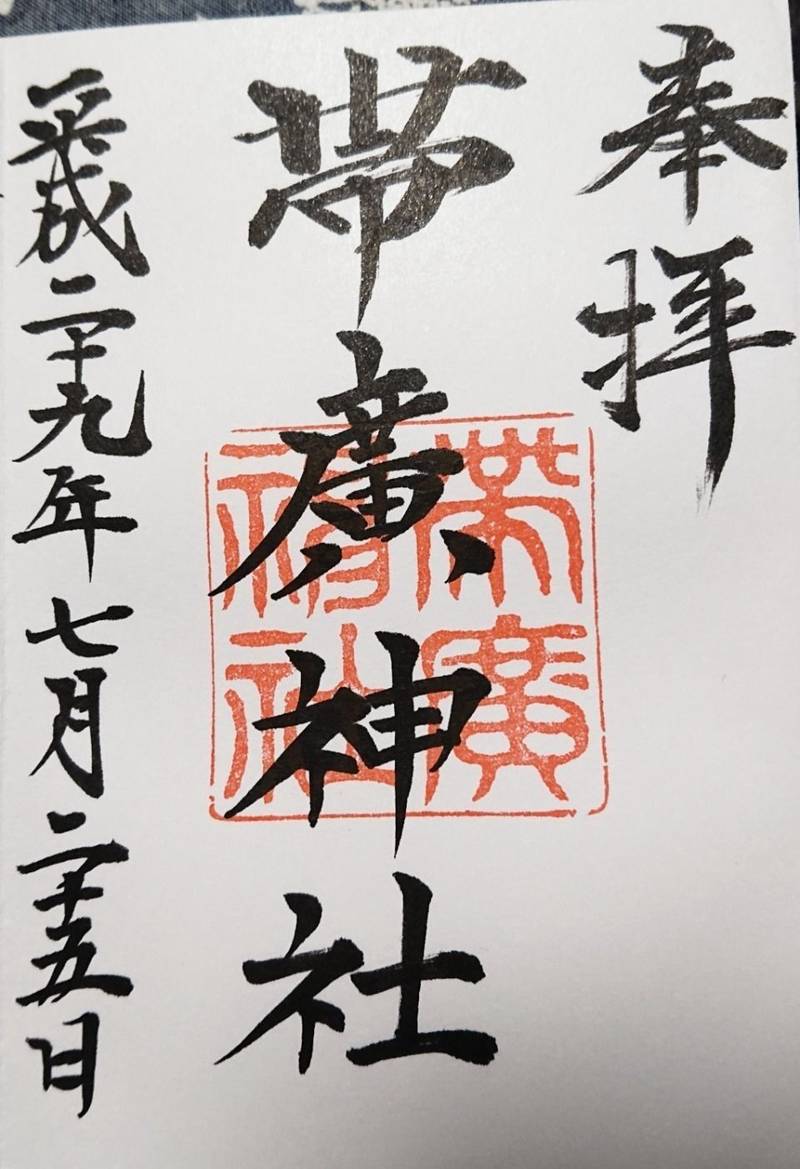 奉拝
帯廣神社
帯廣神社
平成二十九年七月二十五日